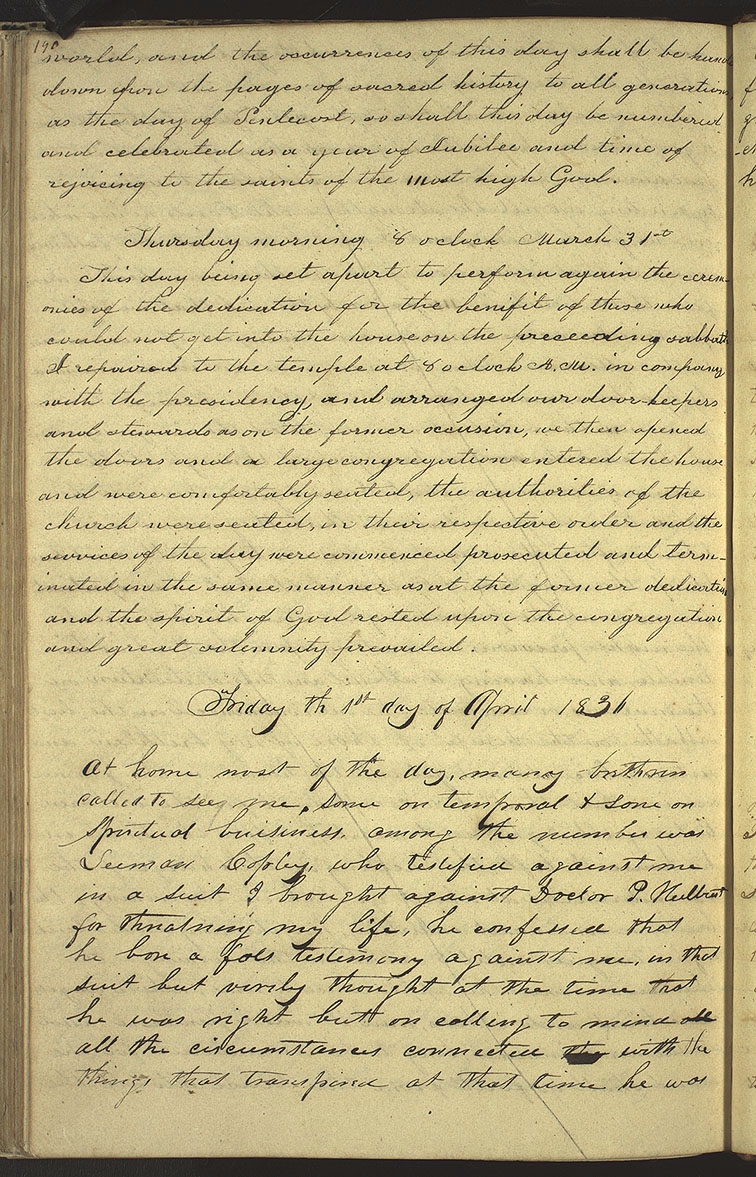 190
world, and the occurrences of this day shall be hand
down upon the pages of sacred history to all generations,
as the day of Pentecost, so shall this day be numbered
and celebrated as a year of Jubilee and time of
rejoicing to the saints of the most high God.
Thursday morning 8 oclock March 31st
This day being set apart to perform again the cerem-
onies of the dedication for the benifit of those who
could not get into the house on the preceeding sabbath
I repaired to the temple at 8 oclock A.M. in company
with the presidency, and arranged our door-keepers
and stewards as on the former occasion, we then opened
the doors and a large congregation entered the house
and were comfortably seated, the authorities of the
church were seated, in their respective order and the
services of the day were commenced prosecuted and term-
inated in the same manner as at the former dedication
and the spirit of God rested upon the congregation
and great solemnity prevailed.
Friday th 1st day of April 1836
At home most of the day, many brethren
called to see me, some on temporal & some on
spiritual buisiness, among the number was
Leeman Copley, who testified against me
in a suit I brought against Doctor P. Hulbut
for thretning my life, he confessed that
he bore a fols testimony against me, in that
suit but verily thought at the time that
he was right but on calling to mind all
all the circumstances connected with the
things that transpired at that time he was